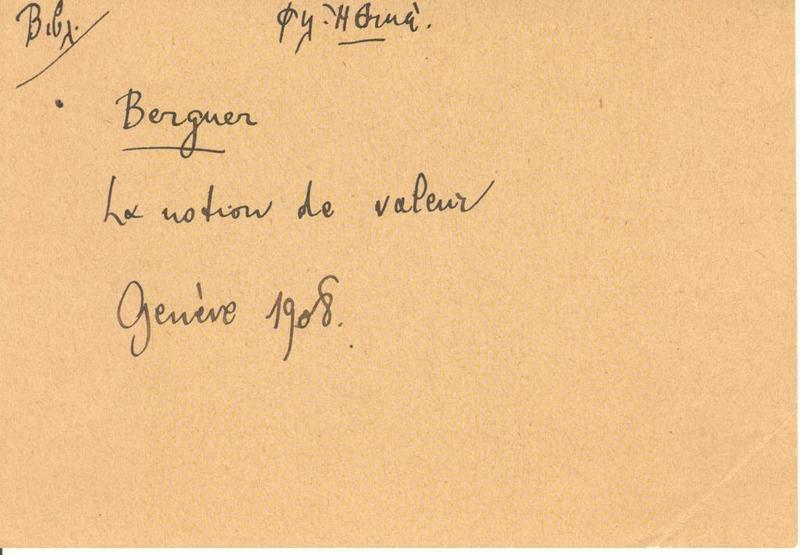 Βιβλ.
Φλ. Ἠθικά.
Berguer
La notion de valeur
Genève 1908.